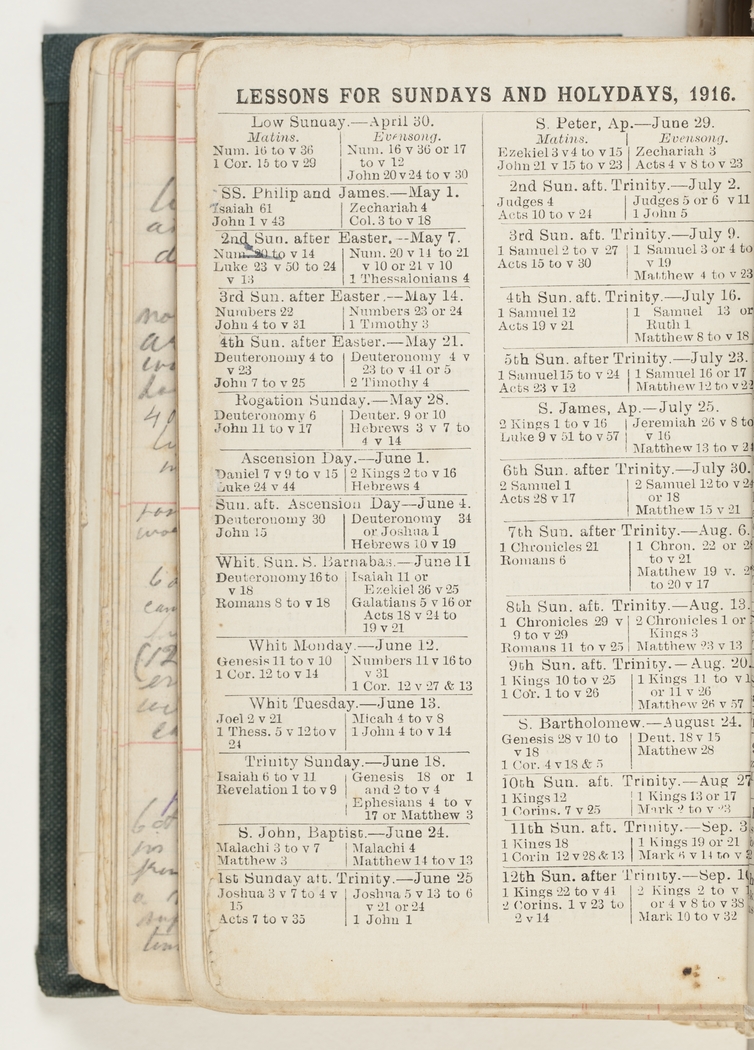 LESSONS FOR SUNDAYS AND HOLYDAYS, 1916.
Low Sunday.—April 30.
Matins. Evensong.
Num. 16 to v 36
1 Cor. 15 to v 29
Num. 16 v 36 or 17
to v 12
John 20 v 24 to v 30
SS. Philip and James.—May 1.
Isaiah 61
John 1 v 43
Zechariah 4
Col. 3 to v 18
2nd Sun. after Easter.—May 7.
Num. 20 to v 14
Luke 23 v 50 to 24
v 13
Num. 20 v 14 to 21
v 10 or 21 v 10
1 Thessalonians 4
3rd Sun. after Easter.—May 14.
Numbers 22
John 4 to v 31
Numbers 23 or 24
1 Timothy 3
4th Sun. after Easter.—May 21.
Deuteronomy 4 to
v 23
John 7 to v 25
Deuteronomy 4 v
23 to v 41 or 5
2 Timothy 4
Rogation Sunday.—May 28.
Deuteronomy 6
John 11 to v 17
Deuter. 9 or 10
Hebrews 3 v 7 to
4 v 14
Ascension Day.—June 1.
Daniel 7 v 9 to v 15
Luke 24 v 44
2 Kings 2 to v 16
Hebrews 4
Sun. aft. Ascension Day—June 4.
Deuteronomy 30
John 15
Deuteronomy 34
or Joshua 1
Hebrews 10 v 19
Whit. Sun. S. Barnabas.—June 11
Deuteronomy 16 to
v 18
Romans 8 to v 18
Isaiah 11 or
Ezekiel 36 v 25
Galatians 5 v 16 or
Acts 18 v 24 to
19 v 21
Whit Monday.—June 12.
Genesis 11 to v 10
1 Cor. 12 to v 14
Numbers 11 v 16 to
v 31
1 Cor. 12 v 27 & 13
Whit Tuesday.—June 13.
Joel 2 v 21
1 Thess. 5 v 12 to v
24
Micah 4 to v 8
1 John 4 to v 14
Trinity Sunday.—June 18.
Isaiah 6 to v 11
Revelation 1 to v 9
Genesis 18 or 1
and 2 to v 4
Ephesians 4 to v
17 or Matthew 3
S. John, Baptist.—June 24.
Malachi 3 to v 7
Matthew 3
Malachi 4
Matthew 14 to v 13
1st Sunday aft. Trinity.—June 25
Joshua 3 v 7 to 4 v
15
Acts 7 to v 35
Joshua 5 v 13 to 6
v 21 or 24
1 John 1
S. Peter, Ap.—June 29.
Matins. Evensong.
Ezekiel 3 v 4 to v 15
John 21 v 15 to v 23
Zechariah 3
Acts 4 v 8 to v 23
2nd Sun. aft. Trinity.—July 2.
Judges 4
Acts 10 to v 24
Judges 5 or 6 v 11
1 John 5
3rd Sun. aft. Trinity.—July 9.
1 Samuel 2 to v 27
Acts 15 to v 30
1 Samuel 3 or 4 to
v 19
Matthew 4 to v 23
4th Sun. aft. Trinity.—July 16.
1 Samuel 12
Acts 19 v 21
1 Samuel 13 or
Ruth 1
Matthew 8 to v 18
5th Sun. after Trinity.—July 23.
1 Samuel 15 to v 24
Acts 23 v 12
1 Samuel 16 or 17
Matthew 12 to v 22
S. James, Ap.—July 25.
2 Kings 1 to v 16
Luke 9 v 51 to v 57
Jeremiah 26 v 8 to
v 16
Matthew 13 to v 24
6th Sun. after Trinity.—July 30.
2 Samuel 1
Acts 28 v 17
2 Samuel 12 to v 24
or 18
Matthew 15 v 21
7th Sun. after Trinity.—Aug. 6.
1 Chronicles 21
Romans 6
1 Chron. 22 or
to v 21
Matthew 19 v.
to 20 v 17
8th Sun. aft. Trinity.—Aug. 13.
1 Chronicles 29 v
9 to v 29
Romans 11 to v 25
2 Chronicles 1 or
Kings 3
Matthew 23 v 13
9th Sun. aft. Trinity.—Aug. 20.
1 Kings 10 to v 25
1 Cor. 1 to v 26
1 Kings 11 to v 1
or 11 v 26
Matthew 26 v 57
S. Bartholomew.—August 24.
Genesis 28 v 10 to
v 18
1 Cor. 4 v 18 & 5
Deut. 18 v 15
Matthew 28
10th Sun. aft. Trinity.—Aug 27
1 Kings 12
1 Corins. 7 v 25
1 Kings 13 or 17
Mark 2 to v 23
11th Sun. aft. Trinity.—Sep. 3
1 Kings 18
1 Corin 12 v 28 & 13
1 Kings 19 or 21
Mark 6 v 14 to v
12th Sun. after Trinity.—Sep. 10
1 Kings 22 to v 41
2 Corins. 1 v 23 to
2 v 14
2 Kings 2 to v 1
or 4 v 8 to v 38
Mark 10 to v 32